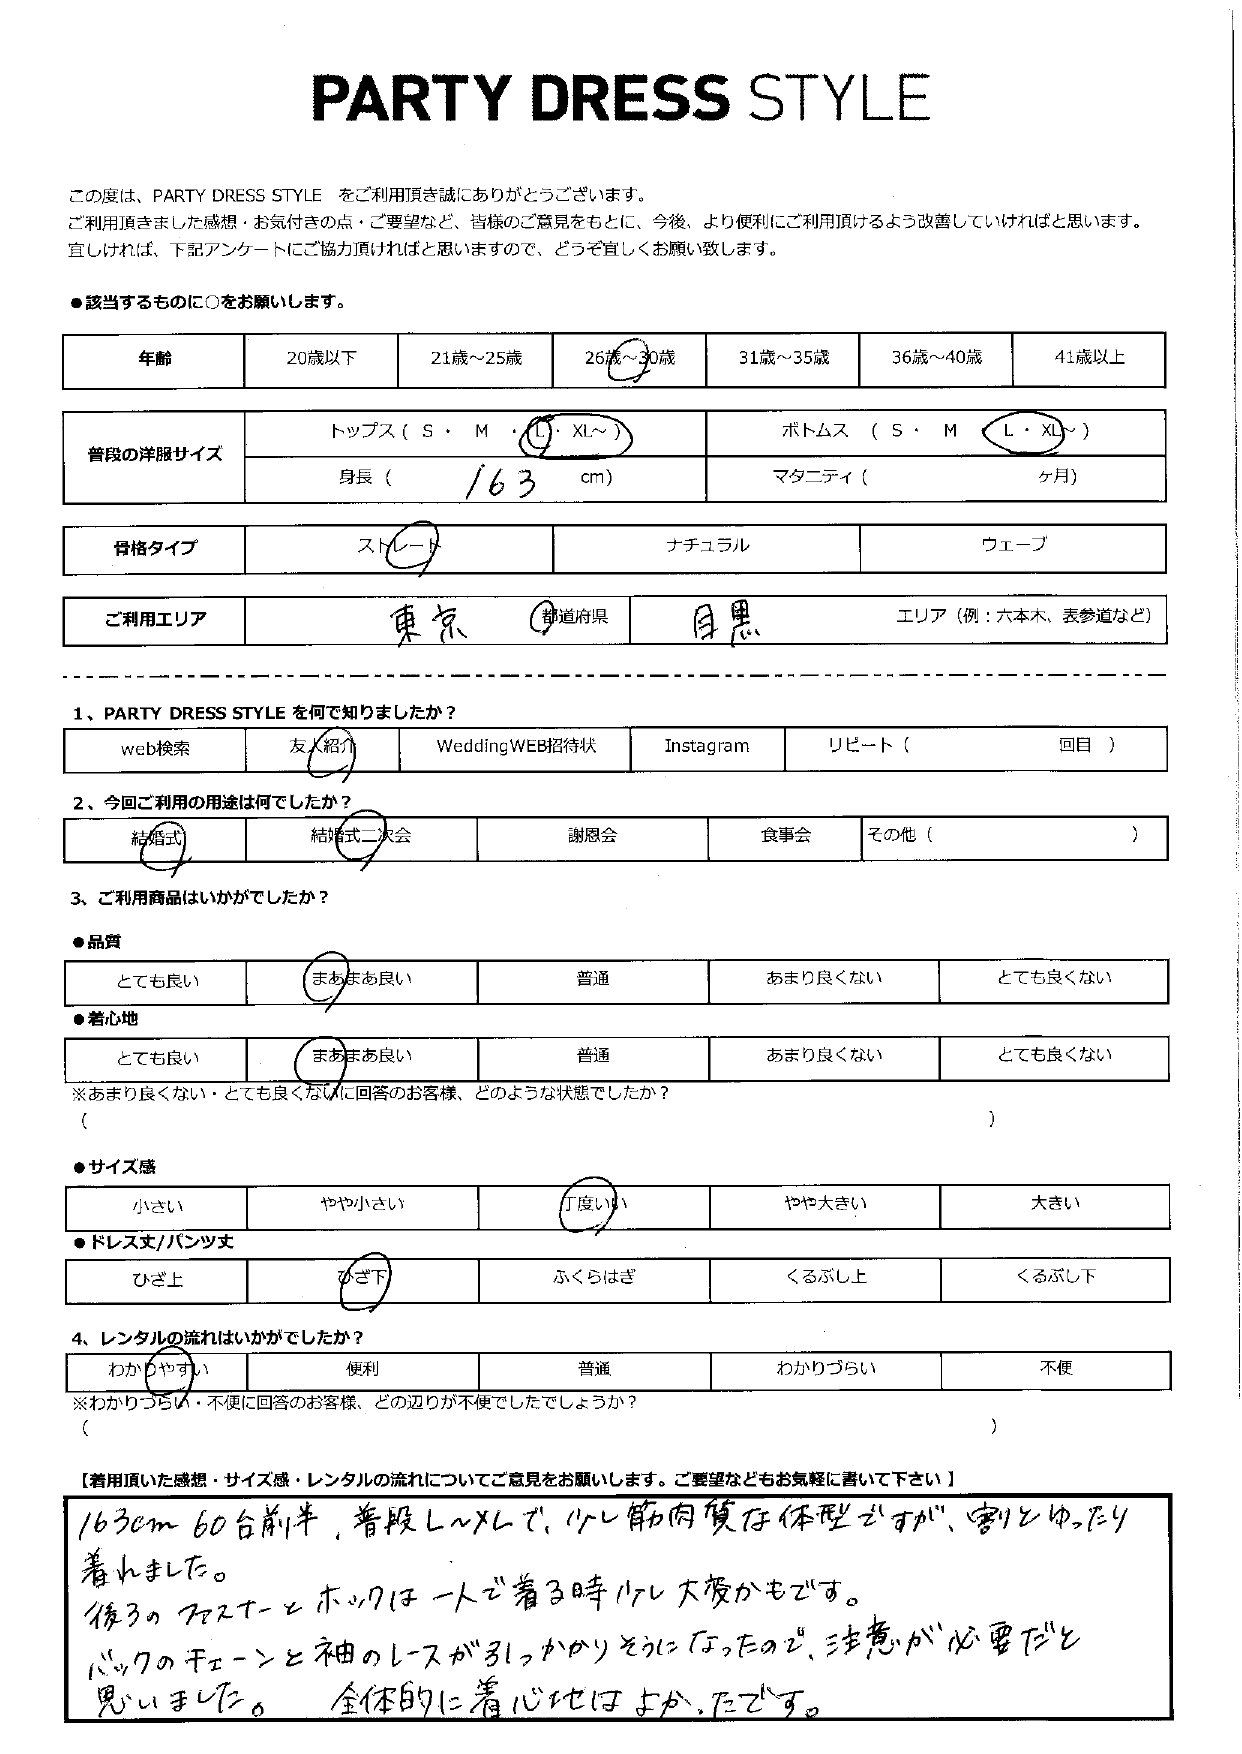 PARTY DRESS STYLE
この度は、PARTY DRESS STYLE をご利用頂き誠にありがとうございます。
ご利用頂きました感想・お気付きの点・ご要望など、皆様のご意見をもとに、今後、より便利にご利用頂けるよう改善していければと思います。
宜しければ、下記アンケートにご協力頂ければと思いますので、どうぞ宜しくお願い致します。
●該当するものに○をお願いします。
年齢 20歳以下 21歳～25歳 26歳～30歳 31歳～35歳 36歳～40歳 41歳以上
普段の洋服サイズ トップス ( S ・ M ・ L ・ XL～ ) ボトムス ( S ・ M L ・ XL～ )
身長 ( 163 cm) マタニティ ( ヶ月)
骨格タイプ ストレート ナチュラル ウェーブ
ご利用エリア 東京 都道府県 目黒 エリア（例：六本木、表参道など）
1、PARTY DRESS STYLE を何で知りましたか？
web検索 友人紹介 WeddingWEB招待状 Instagram リピート ( 回目 )
2、今回ご利用の用途は何でしたか？
結婚式 結婚式二次会 謝恩会 食事会 その他 ( )
3、ご利用商品はいかがでしたか？
●品質
とても良い まあまあ良い 普通 あまり良くない とても良くない
●着心地
とても良い まあまあ良い 普通 あまり良くない とても良くない
※あまり良くない・とても良くないに回答のお客様、どのような状態でしたか？
( )
●サイズ感
小さい やや小さい 丁度いい やや大きい 大きい
●ドレス丈/パンツ丈
ひざ上 ひざ下 ふくらはぎ くるぶし上 くるぶし下
4、レンタルの流れはいかがでしたか？
わかりやすい 便利 普通 わかりづらい 不便
※わかりづらい・不便に回答のお客様、どの辺りが不便でしたでしょうか？
( )
【着用頂いた感想・サイズ感・レンタルの流れについてご意見をお願いします。ご要望などもお気軽に書いて下さい 】
163cm 60台前半、普段L～XLで、少し筋肉質な体型ですが、割とゆったり
着れました。
後ろのファスナーとホックは一人で着る時少し大変かもです。
バックのチェーンと袖のレースが引っかかりそうになったので、注意が必要だと
思いました。 全体的に着心地はよかったです。